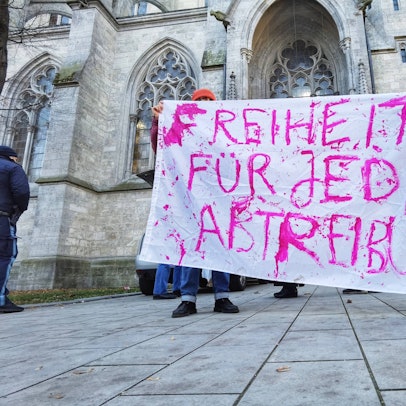 FREIHEIT
FÜR JED
ABTREIBU